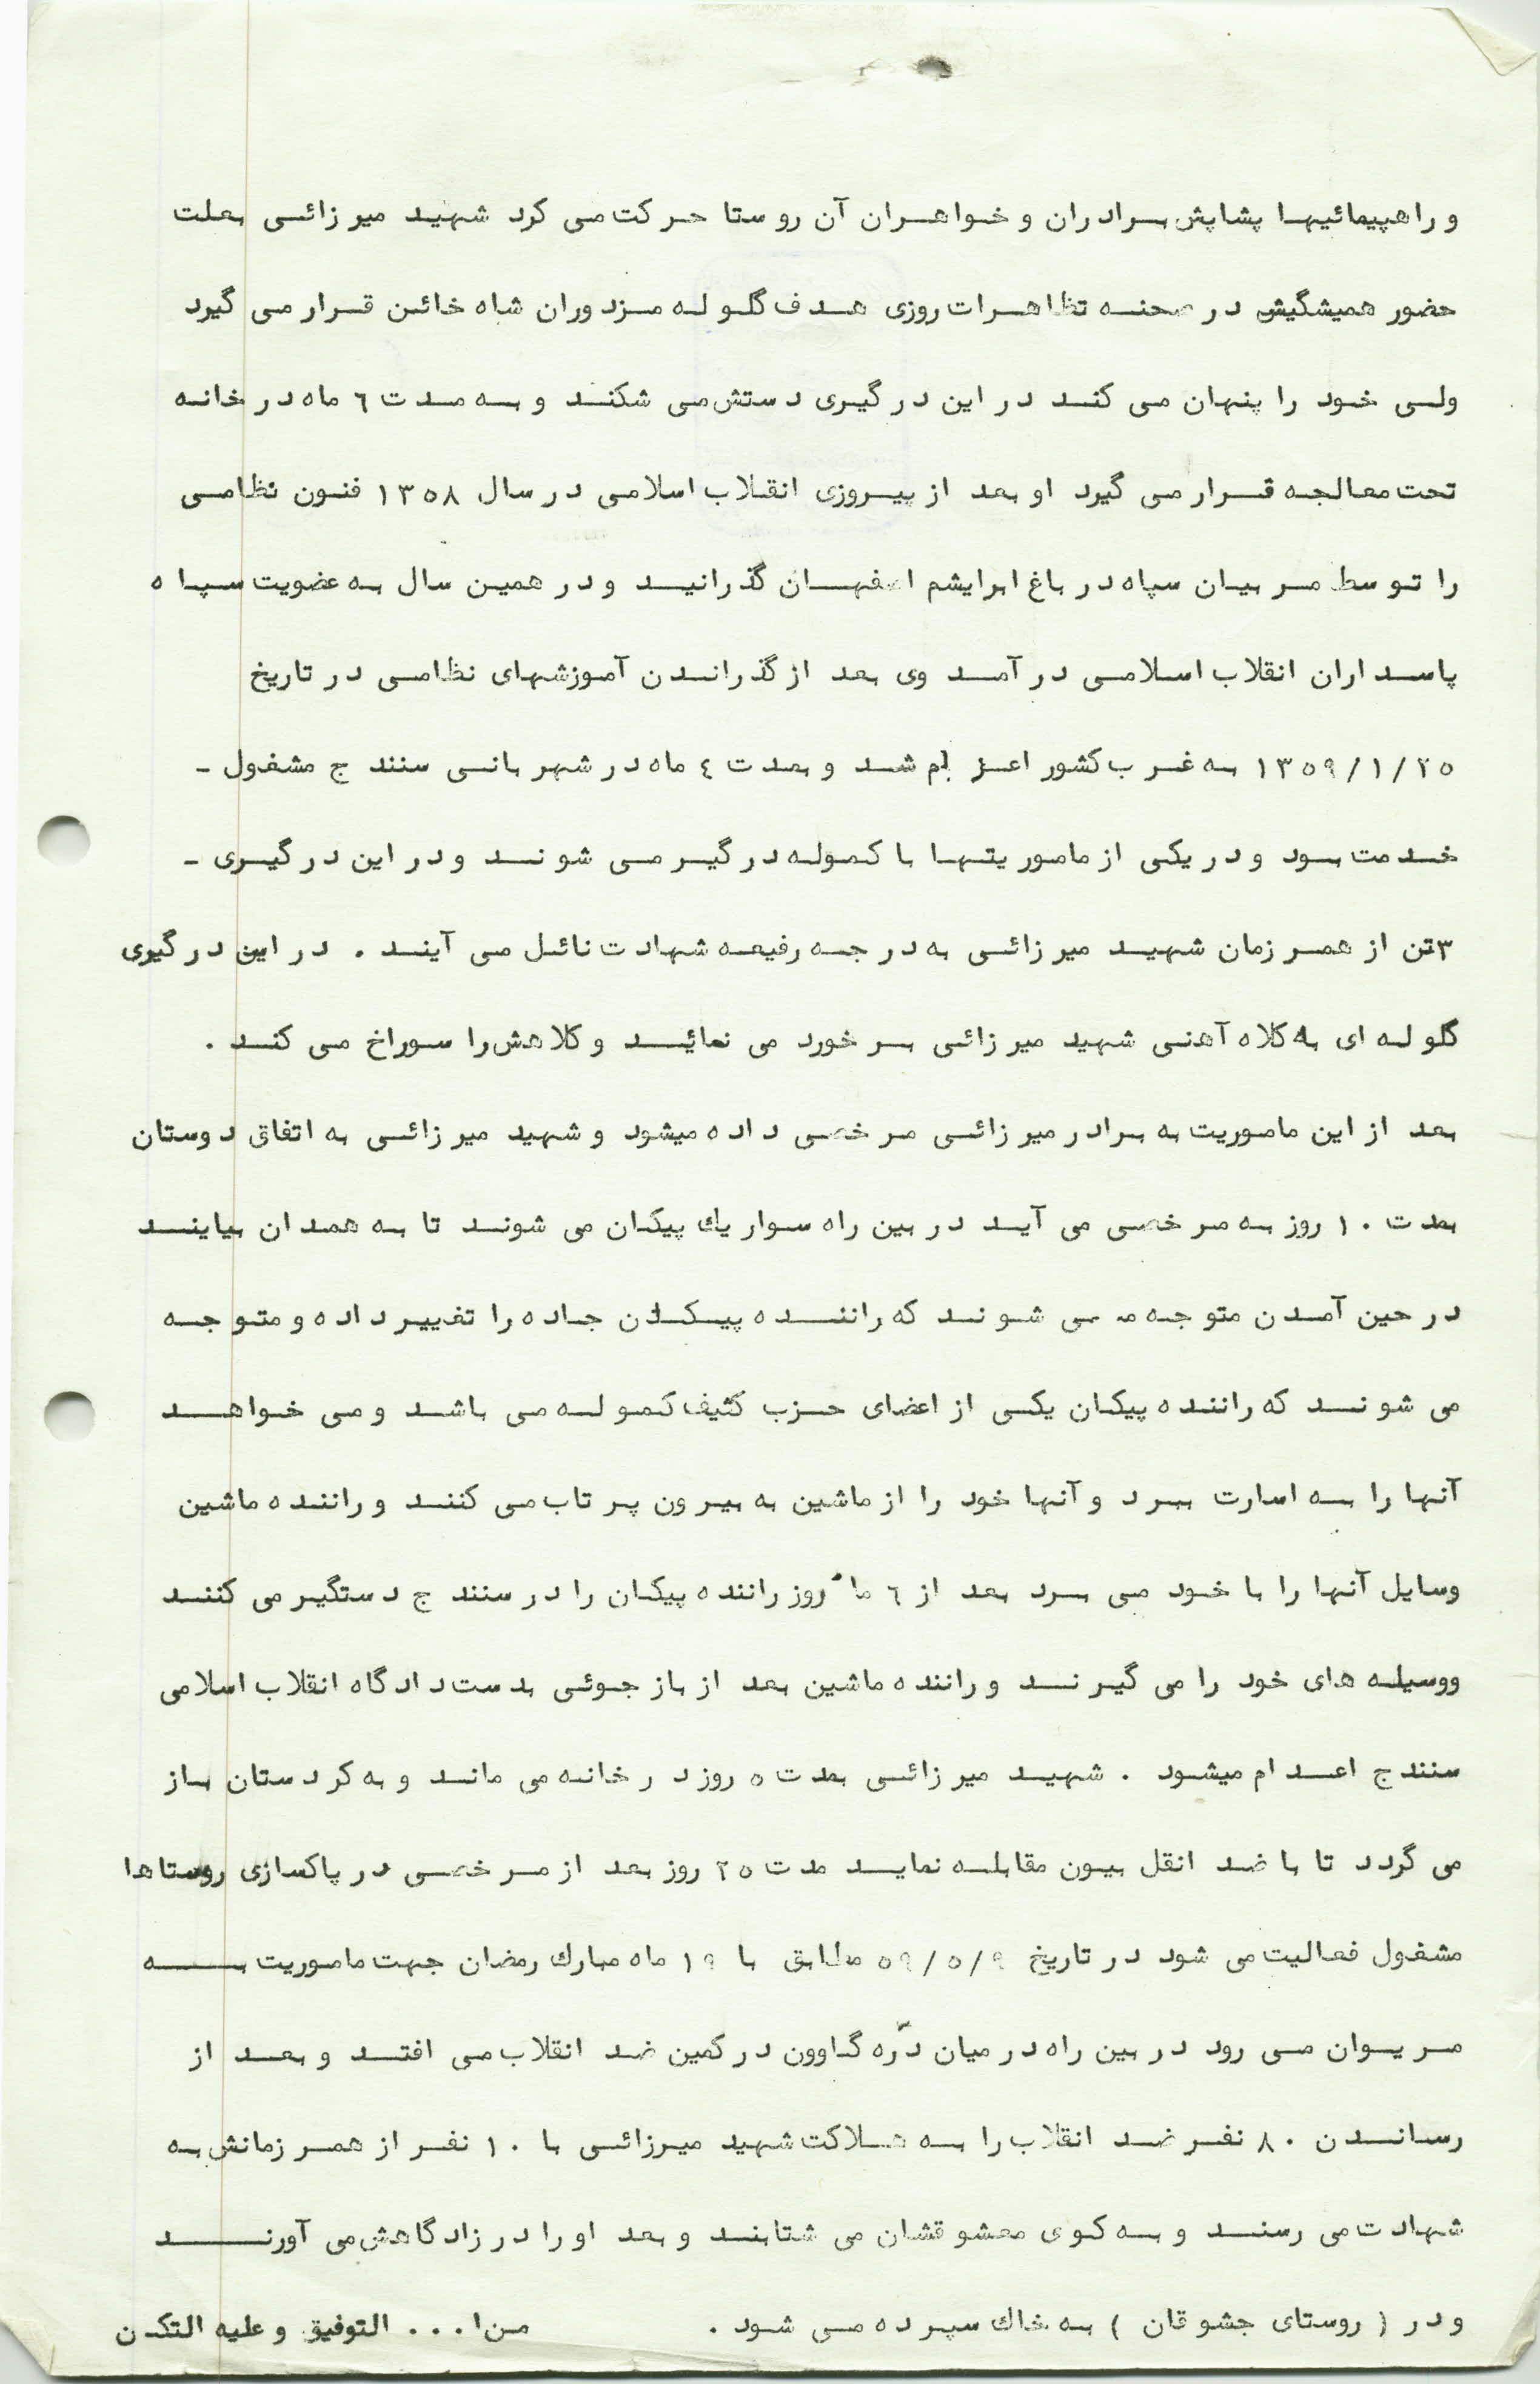 و راهپیمائیها پشاپش برادران و خواهران آن روستا حرکت می کرد شهید میرزائی بعلت
حضور همیشگیش در صحنه تظاهرات روزی هدف گلوله مزدوران شاه خائن قرار می گیرد
ولی خود را پنهان می کند در این درگیری دستش می شکند و به مدت ٦ ماه در خانه
تحت معالجه قرار می گیرد او بعد از پیروزی انقلاب اسلامی در سال ۱۳۵۸ فنون نظامی
را توسط مربیان سپاه در باغ ابرایشم اصفهان گذرانید و در همین سال به عضویت سپاه
پاسداران انقلاب اسلامی در آمد وی بعد از گذراندن آموزشهای نظامی در تاریخ
۱۳۵۹/۱/۲۵ به غرب کشور اعزام شد و بمدت ٤ ماه در شهربانی سنندج مشغول -
خدمت بود و در یکی از ماموریتها با کموله درگیر می شوند و در این درگیری -
۳تن از همرزمان شهید میرزائی به درجه رفیعه شهادت نائل می آیند . در این درگیری
گلوله ای به کلاه آهنی شهید میرزائی برخورد می نمائید و کلاهش را سوراخ می کند .
بعد از این ماموریت به برادر میرزائی مرخصی داده میشود و شهید میرزائی به اتفاق دوستان
بمدت ۱۰ روز به مرخصی می آید در بین راه سوار یك پیکان می شوند تا به همدان بیایند
در حین آمدن متوجه می شوند که راننده پیکان جاده را تغییر داده و متوجه
می شوند که راننده پیکان یکی از اعضای حزب کثیف کموله می باشد و می خواهد
آنها را به اسارت ببرد و آنها خود را از ماشین به بیرون پرتاب می کنند و راننده ماشین
وسایل آنها را با خود می برد بعد از ٦ روز راننده پیکان را در سنندج دستگیر می کنند
ووسیله های خود را می گیرند و راننده ماشین بعد از بازجوئی بدست دادگاه انقلاب اسلامی
سنندج اعدام میشود . شهید میرزائی بمدت ۵ روز در خانه می ماند و به کردستان باز
می گردد تا با ضد انقل بیون مقابله نماید مدت ۲۵ روز بعد از مرخصی در پاکسازی روستاها
مشغول فعالیت می شود در تاریخ ۵۹/۵/۹ مطابق با ۱۹ ماه مبارك رمضان جهت ماموریت به
مریوان می رود در بین راه در میان درّه گاوون در کمین ضد انقلاب می افتد و بعد از
رساندن ۸۰ نفر ضد انقلاب را به هلاکت شهید میرزائی با ۱۰ نفر از همرزمانش به
شهادت می رسند و به کوی معشوقشان می شتابند و بعد او را در زادگاهش می آورند
و در ( روستای جشوقان ) به خاك سپرده می شود . من ا... التوفیق و علیه التکن